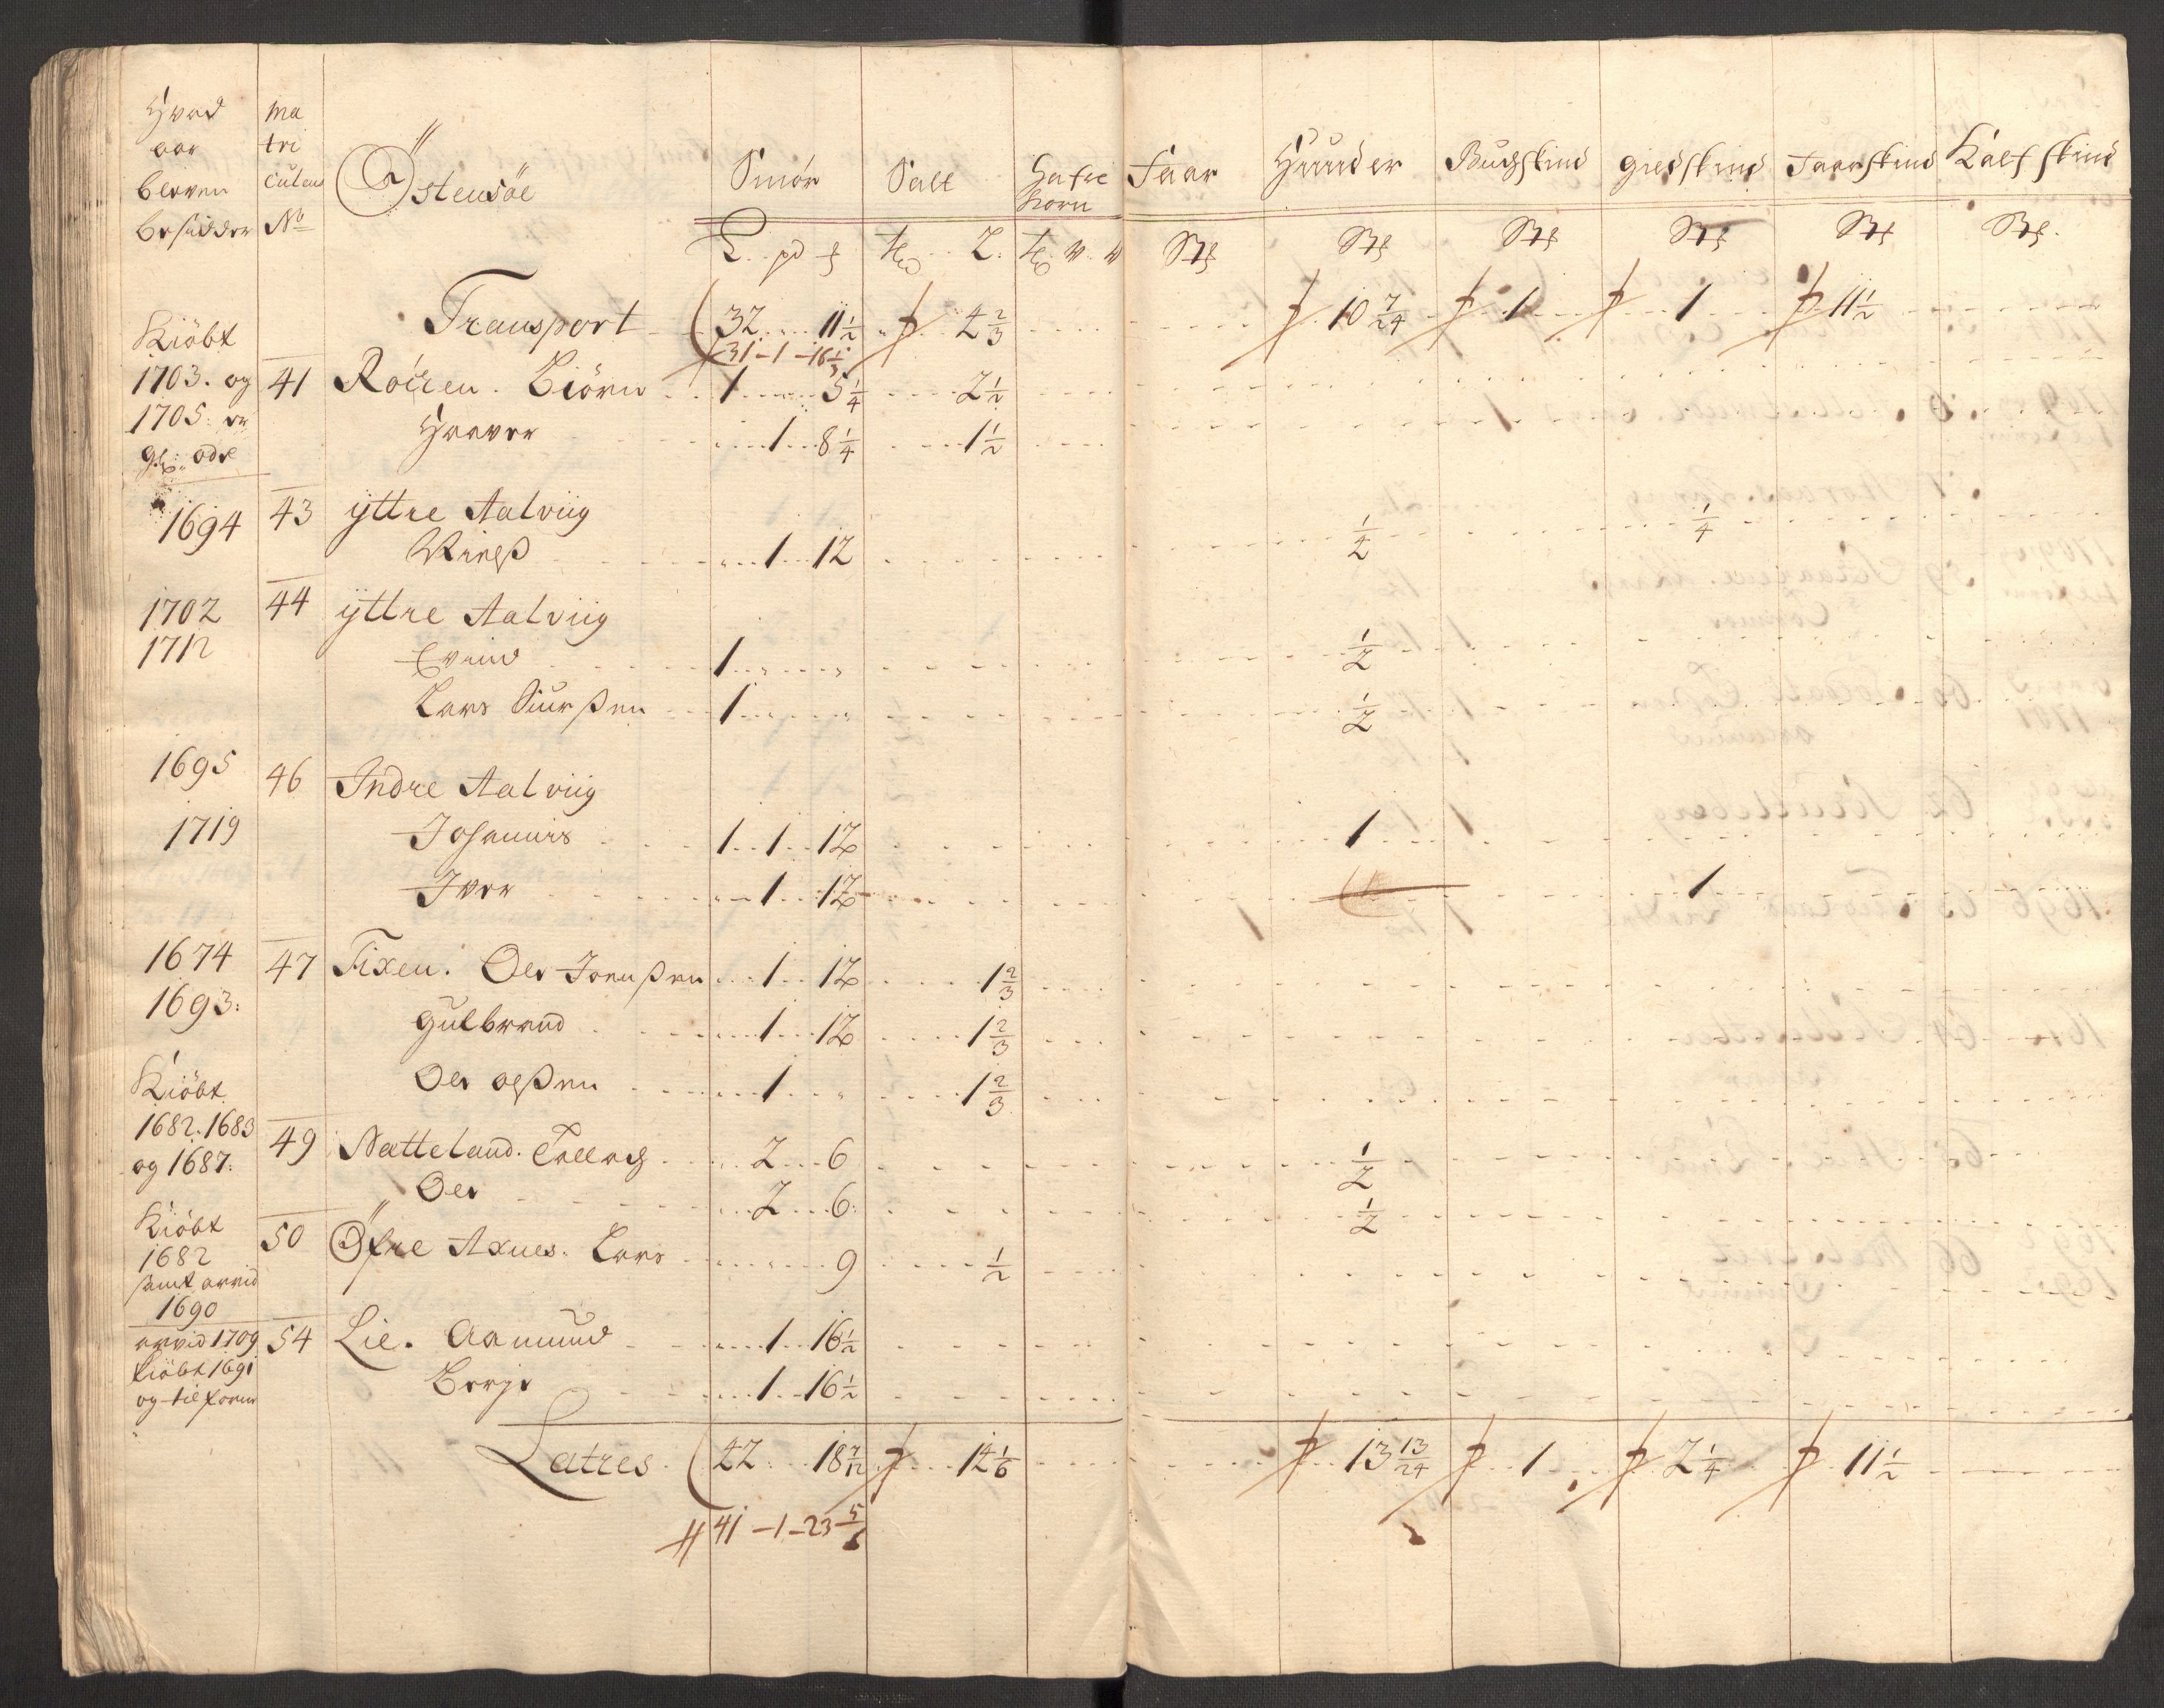 Hvad aar bleven besidder | Matriculens No | Østensöe | Smör | Salt | Hafre Korn | Faar | Huuder | Buchskind | giedskind | Faarskind | Kalfskind
Transport | 32 .. 11½ | 4⅔ | 10 7/24 | 1 | 1 | 11½
31-1-16⅓
Kiöbt 1703. og 1705. | 41 | Röyen. Biörn | 1 .. 5¼ | 2½
Haaver | 1 8¼ | 1½
1694 | 43 | ÿttre Aalviig
1 12 | ½ | ¼
1702 | 44 | ÿttre Aalviig
1712 | Evind | 1 | ½
Lars Siurßen | 1 | ½
1695 | 46 | Indre Aalviig
1719 | Johannis | 1 1 12 | 1
Iver | 1 12 | 1
1674 | 47 | Fixen. Ole Joenßen | 1 12 | 1⅔
1693: | Gulbrand | 1 12 | 1⅔
Ole olßen | 1 | 1⅔
Kiöbt 1682. 1683 og 1687: | 49 | Netteland. Tollach | 2 6 | ½
Ole | 2 6: | ½
Kiöbt 1682 samt arvid 1690 | 50 | Øfre Axnes. Lars | 9 | ½
arvid 1709 kiöbt 1691 og tilforne | 54 | Lie. Aamund | 1 16½
Berje | 1 16½
Latres | 42 18 7/12 | 14⅙ | 13 13/24 | 1 | 2¼ | 11½
41-1-23⅚